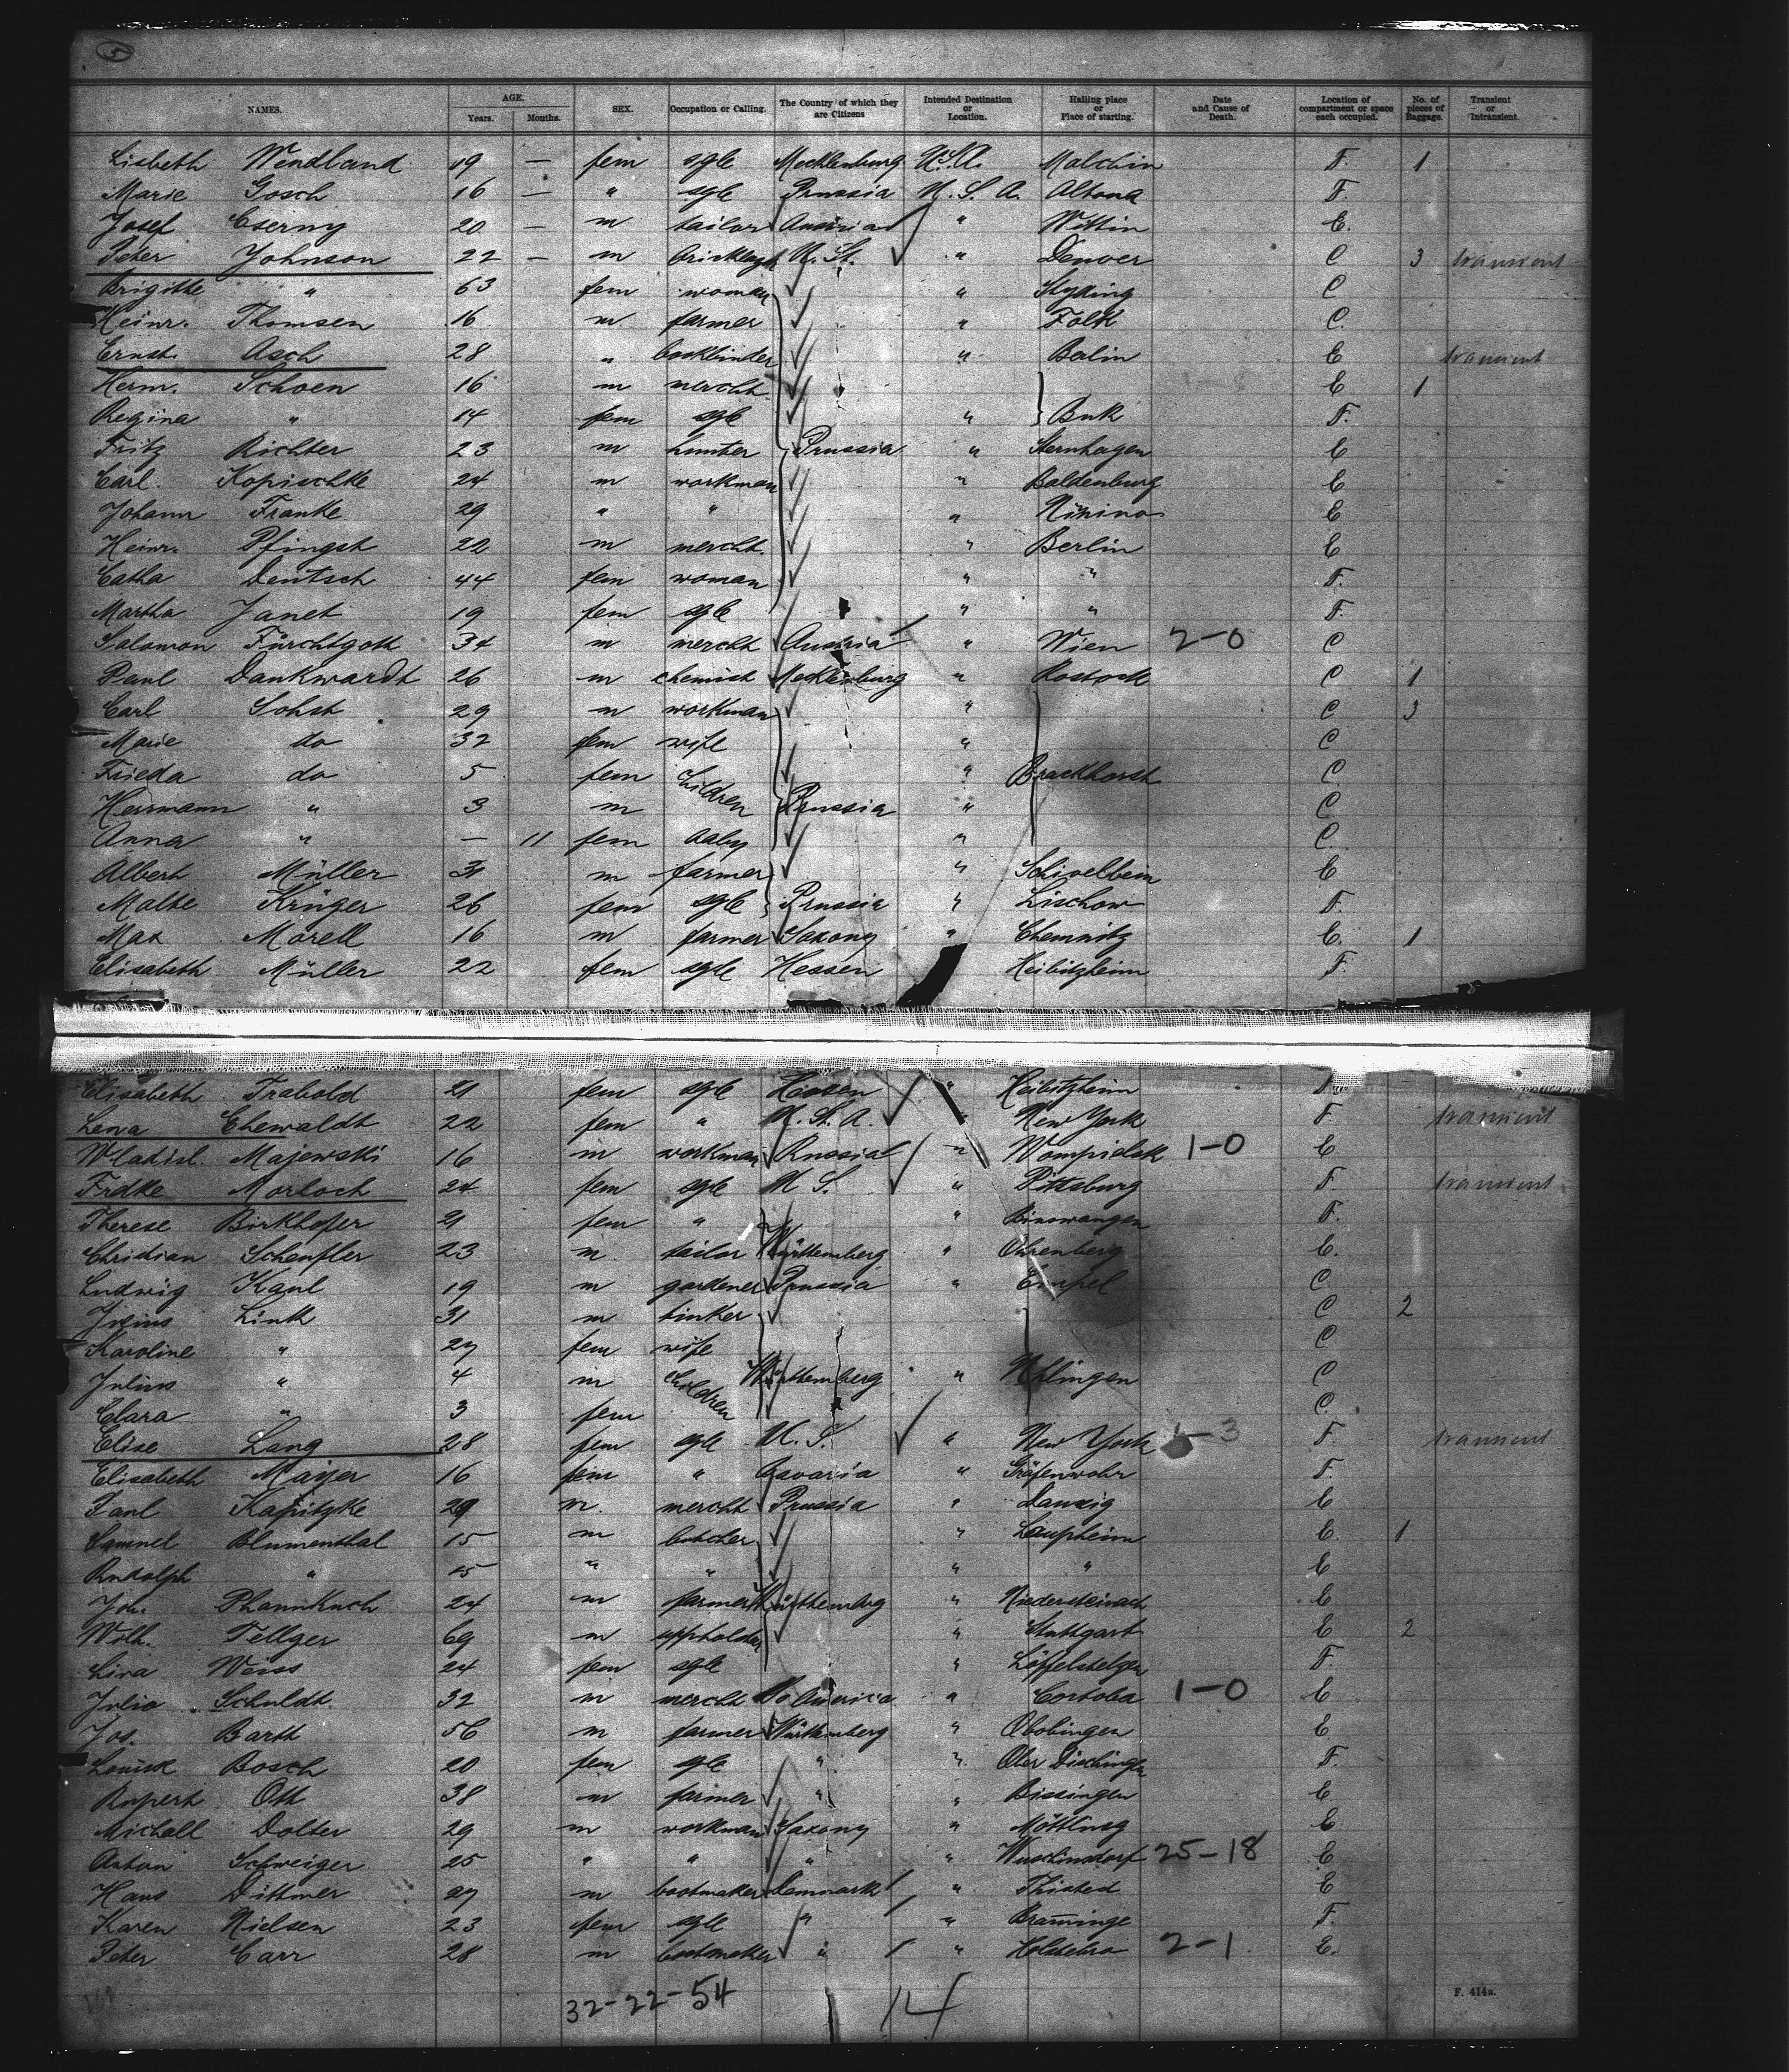 5
NAMES. AGE. Years. Months. SEX. Occupation or Calling. The Country of which they are Citizens Intended Destination or Location. Hailing place or Place of starting. Date and Cause of Death. Location of compartment or space each occupied. No. of pieces of Baggage. Transient or Intransient.
Lisbeth Wendland 19 — fem sgle Mecklenburg U.S.A. Malchin F. 1
Marie Gosch 16 — " sgle Prussia U. S. A. Altona F.
Josef Cserny 20 — m tailor Austria " Wittin E.
Peter Johnson 22 — m bricklayer U. St. " Denver C 3 transient
Brigitte " 63 fem woman " Hyding C
Heinr. Thomsen 16 m farmer " Folk C.
Ernst Asch 28 " bookbinder " Berlin E transient
Herm. Schoen 16 m mercht E 1
Regina " 14 fem sgle " Buk F.
Fritz Richter 23 m hunter Prussia " Sternhagen E
Carl Kopischke 24 m workman " Baldenburg E
Johann Franke 29 " " " E
Heinr. Pfingst 22 m mercht " Berlin E
Catha Deutsch 44 fem woman " " F.
Martha Janet 19 fem sgle " " F.
Salomon Fürchtgott 34 m mercht Austria " Wien 2-0 C
Paul Dankwardt 26 m chemist Mecklenburg " Rostock C 1
Carl Sohst 29 m workman " C 3
Marie do 32 fem wife " C
Frieda do 5 fem children " Brackhorst C
Herrmann " 3 m Prussia " C
Anna " — 11 fem baby " C.
Albert Müller 31 m farmer " Schivelbein E
Malte Krüger 26 fem sgle Prussia " Lischow F.
Max Morell 16 m farmer Saxony " Chemnitz E. 1
Elisabeth Müller 22 fem sgle Hessen Heibitzheim F.
Elisabeth Trabold 21 fem sgle Hessen " Heibitzheim F
Lena Ehewaldt 22 fem " U. St. A. " New York F. transient
Wladisl. Majewski 16 m workman Russia " Wompielsk 1-0 E
Frdke Morloch 24 fem sgle U S. " Pittsburg F transient
Therese Birkhofer 21 fem " " Binswangen F.
Christian Scheufler 23 m tailor Württemberg " Ohrenberg E.
Ludwig Kaul 19 m gardener Prussia " Empel C
Link 31 m tinker C 2
Karoline " 27 fem wife C
Julius " 4 m children Württemberg " C
Clara " 3 fem C.
Elise Lang 28 fem sgle U. S. " New York 1-3 F. transient
Elisabeth Mayer 16 fem " Bavaria " Gräfenwohr F.
Paul Kapitzke 29 m. mercht Prussia " Danzig E
Samuel Blumenthal 15 m butcher " Laupheim E. 1
Rudolph " 15 " " " " E
Joh. Phannkuch 24 m farmer Württemberg " Niedersteinach E
Wilh. Tellger 69 m uppholder " Stuttgart E 2
Lina Weiss 24 fem sgle " Löffelstelzen F.
Julio Schuldt 32 m mercht So America " Cortoba 1-0 E
Jos. Barth 56 m farmer Württemberg " Obobingen E
Louise Bosch 20 fem sgle " " Ober Dischingen F.
Rupert Ott 38 m farmer " " Bissingen E.
Michall Dolter 29 m workman Saxony " Möttling E
Anton Schweiger 25 " " " " Wuschinsdorf 25-18 E
Hans Dittmer 27 m bootmaker Denmark " Thisted E
Karen Nielsen 23 fem sgle " " Braminge F.
Peter Carr 28 m bootmaker " " Holstebro 2-1 E.
32-22-54 14
F. 414a.